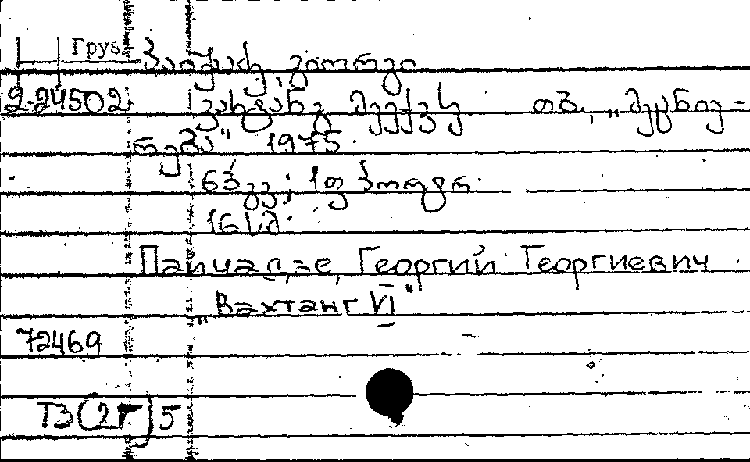 Груз.
პაიჭაძე, გიორგი
2-24502
ვახტანგ მეექვსე. თბ., „მეცნიე-
რება“ 1975.
63 გვ.; 1ფ. პორტრ.
16 სმ.
Пайчадзе, Георгий Георгиевич.
„Вахтанг VI“
72469
ТЗ(2Г)5